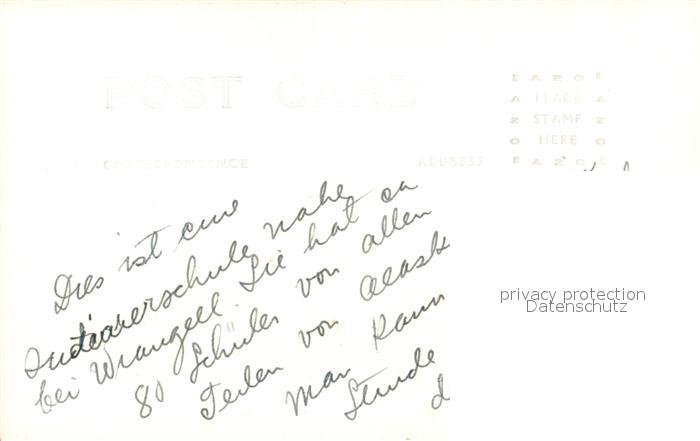 POST CARD
AZO
PLACE
STAMP
HERE
AZO
CORRESPONDENCE
ADDRESS
Dies ist eine
Indianerschule nahe
bei Wrangell. Sie hat ca
80 Schüler von allen
Teilen von Alask
Man kann
Stunde
d
privacy protection
Datenschutz